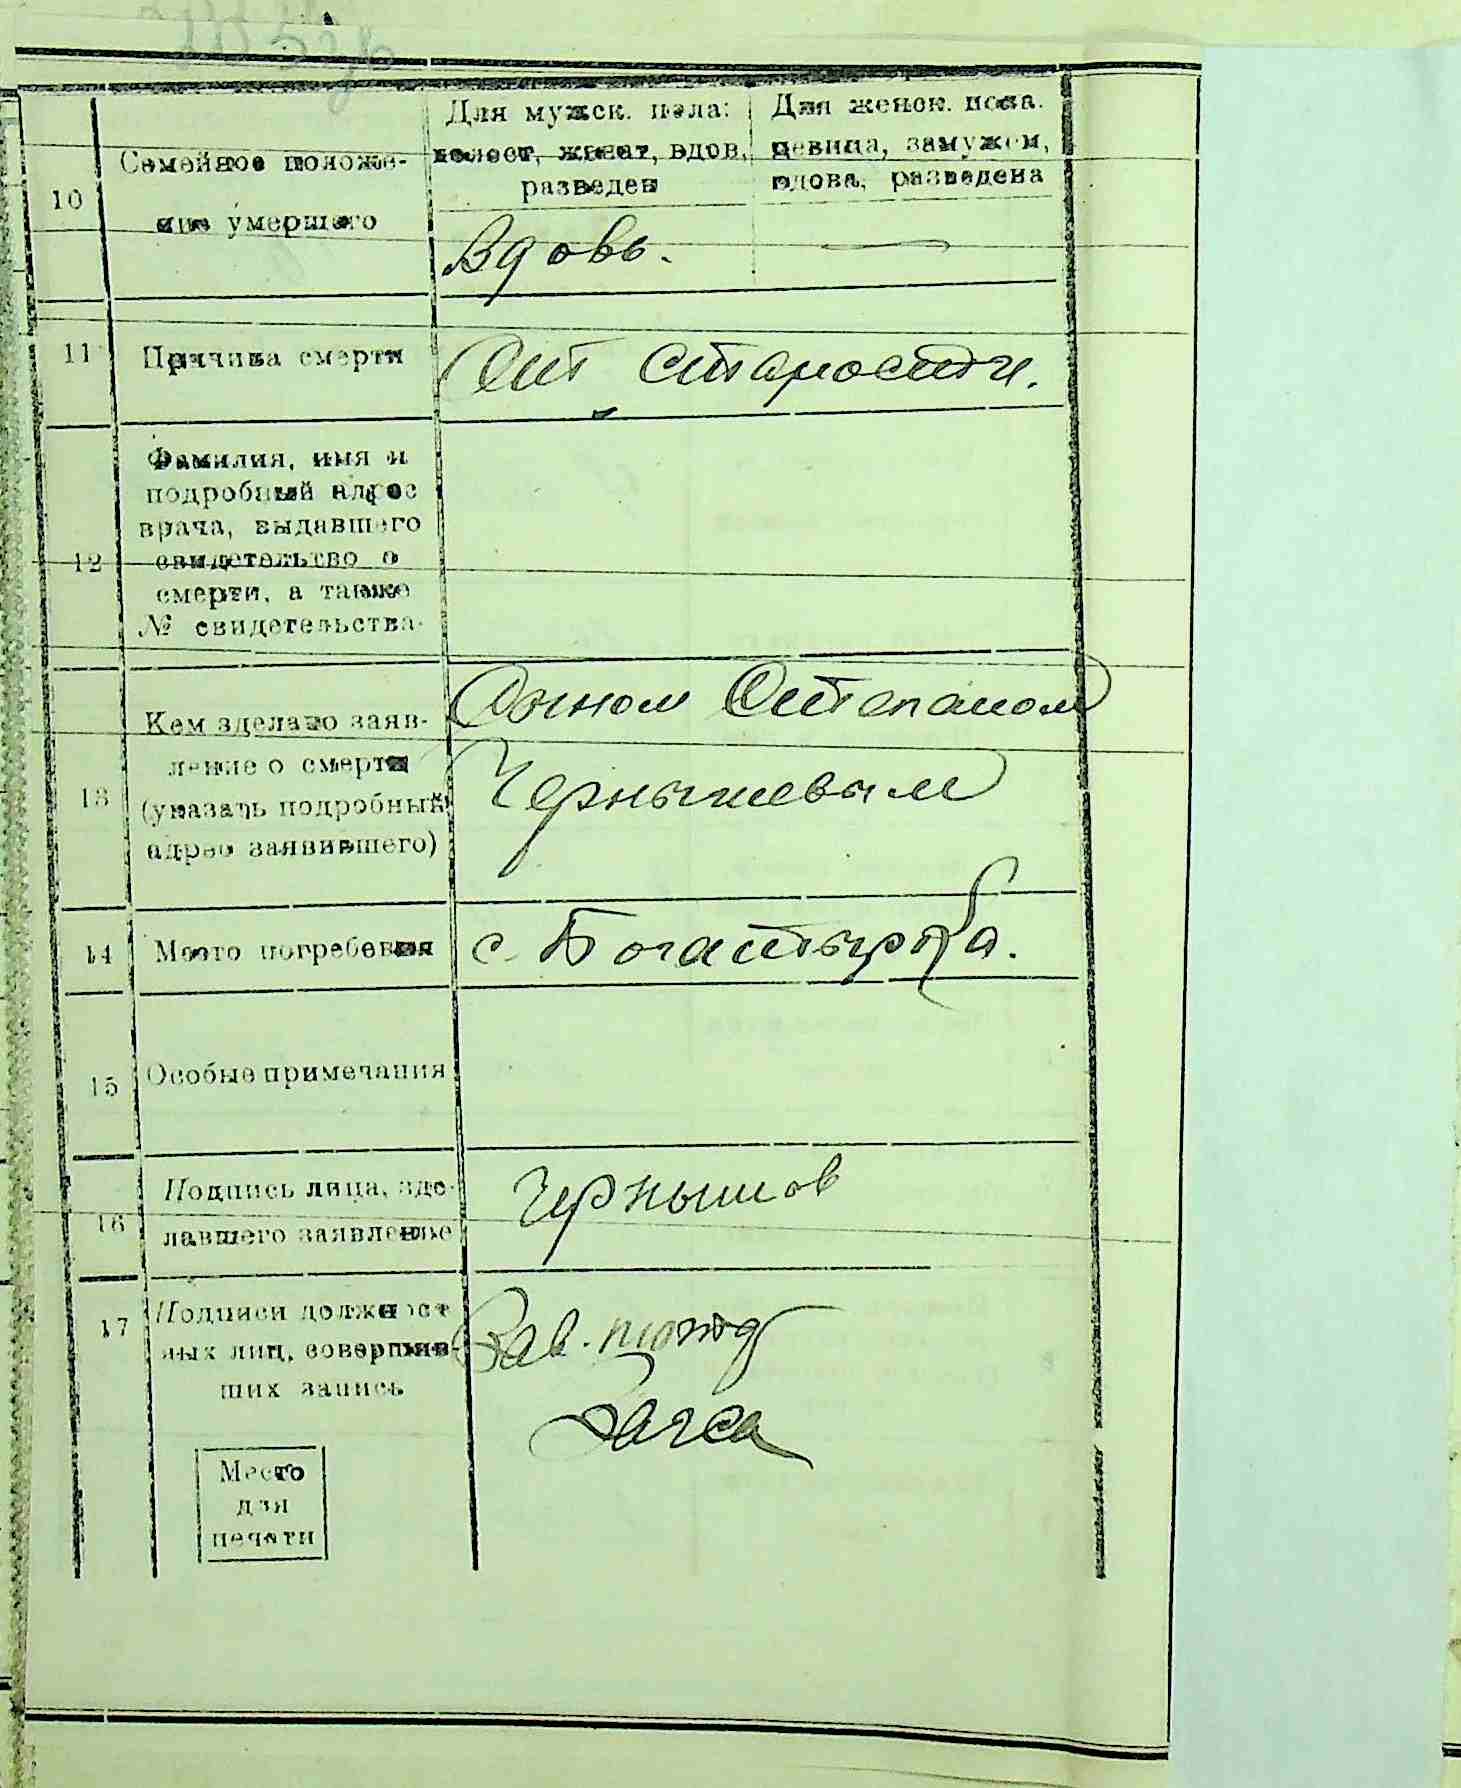 10
Семейное положе-
ние умершего
Для мужск. пола:
холост, женат, вдов,
разведен
Для женск. пола.
девица, замужем,
вдова, разведена
Вдовъ.
—
11
Причина смерти
От старости.
12
Фамилия, имя и
подробный адрес
врача, выдавшего
свидетельство о
смерти, а также
№ свидетельства
13
Кем зделано заяв-
ление о смерти
(указать подробный
адрес заявившего)
Сыном Степаном
Чернышевым
14
Место погребения
с. Богатырка.
15
Особые примечания
16
Подпись лица, зде-
лавшего заявление
Чернышов
17
Подписи должност
ных лиц, совершив-
ших запись
Зав. подъ
Загса
Место
для
печати